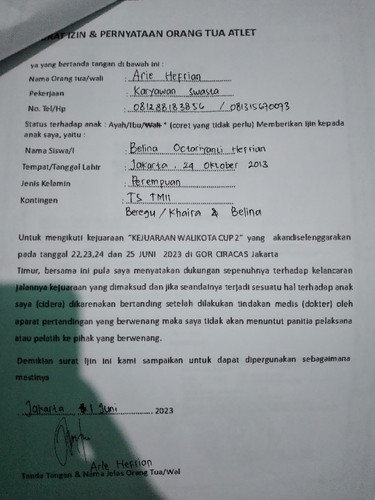 IZIN & PERNYATAAN ORANG TUA ATLET
ya yang bertanda tangan di bawah ini :
Nama Orang tua/wali : Arie Hefrian
Pekerjaan : Karyawan Swasta
No. Tel/Hp : 081288183856 / 081315690093
Status terhadap anak : Ayah/Ibu/Wali * (coret yang tidak perlu) Memberikan Ijin kepada
anak saya, yaitu :
Nama Siswa/I : Belina Octariyanti Hefrian
Tempat/Tanggal Lahir : Jakarta . 24 Oktober 2013
Jenis Kelamin : Perempuan
Kontingen : TS TMII
Beregu / Khaira & Belina
Untuk mengikuti kejuaraan "KEJUARAAN WALIKOTA CUP 2" yang akandiselenggarakan
pada tanggal 22,23,24 dan 25 JUNI 2023 di GOR CIRACAS Jakarta
Timur, bersama ini pula saya menyatakan dukungan sepenuhnya terhadap kelancaran
jalannya kejuaraan yang dimaksud dan jika seandainya terjadi sesuatu hal terhadap anak
saya (cidera) dikarenakan bertanding setelah dilakukan tindakan medis (dokter) oleh
aparat pertandingan yang berwenang maka saya tidak akan menuntut panitia pelaksana
atau pelatih ke pihak yang berwenang.
Demikian surat Ijin ini kami sampaikan untuk dapat dipergunakan sebagaimana
mestinya
Jakarta 1 Juni 2023
Arie Hefrian
Tanda Tangan & Nama Jelas Orang Tua/Wal